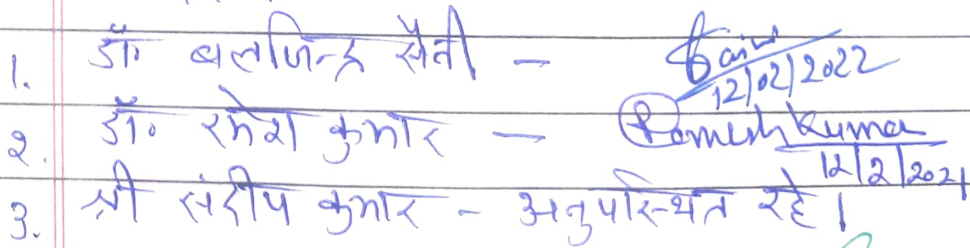 1. डॉ. बलजिन्द्र सैनी - Saini 12/02/2022
2. डॉ. रमेश कुमार - Ramesh Kumar 12/2/2021
3. श्री संदीप कुमार - अनुपस्थित रहे।